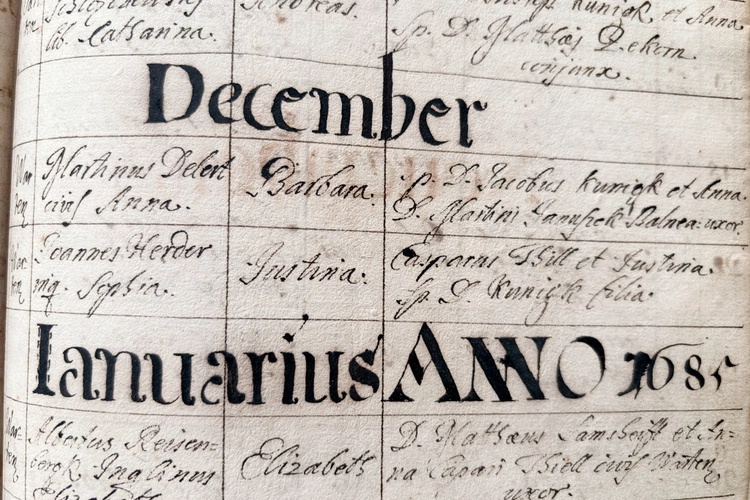 Andreas.
Kunigk et Anna
lib. Catharina.
Sp. D. Matthæj
conjunx.
December
Martinus Delert
civis Anna.
Barbara.
Sp. D. Jacobus Kunigk et Anna
D. Martini Hanusiek Balnea: uxor.
Joannes Herder
inq. Sophia.
Justina.
Casparus Thill et Justina
Sp. D. Kunigk filia.
Ianuarius ANNO 1685
Albertus Reisen=
bergk Inqlinus
Elizabeth
Elizabeth
D. Matthæus et An=
na Caspari Thiell civis
uxor.